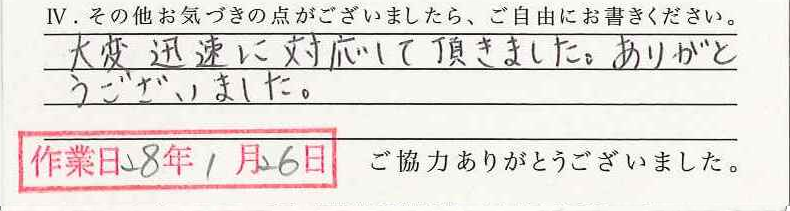 Ⅳ．その他お気づきの点がございましたら、ご自由にお書きください。
大変迅速に対応して頂きました。ありがと
うございました。
作業日28年1月26日
ご協力ありがとうございました。